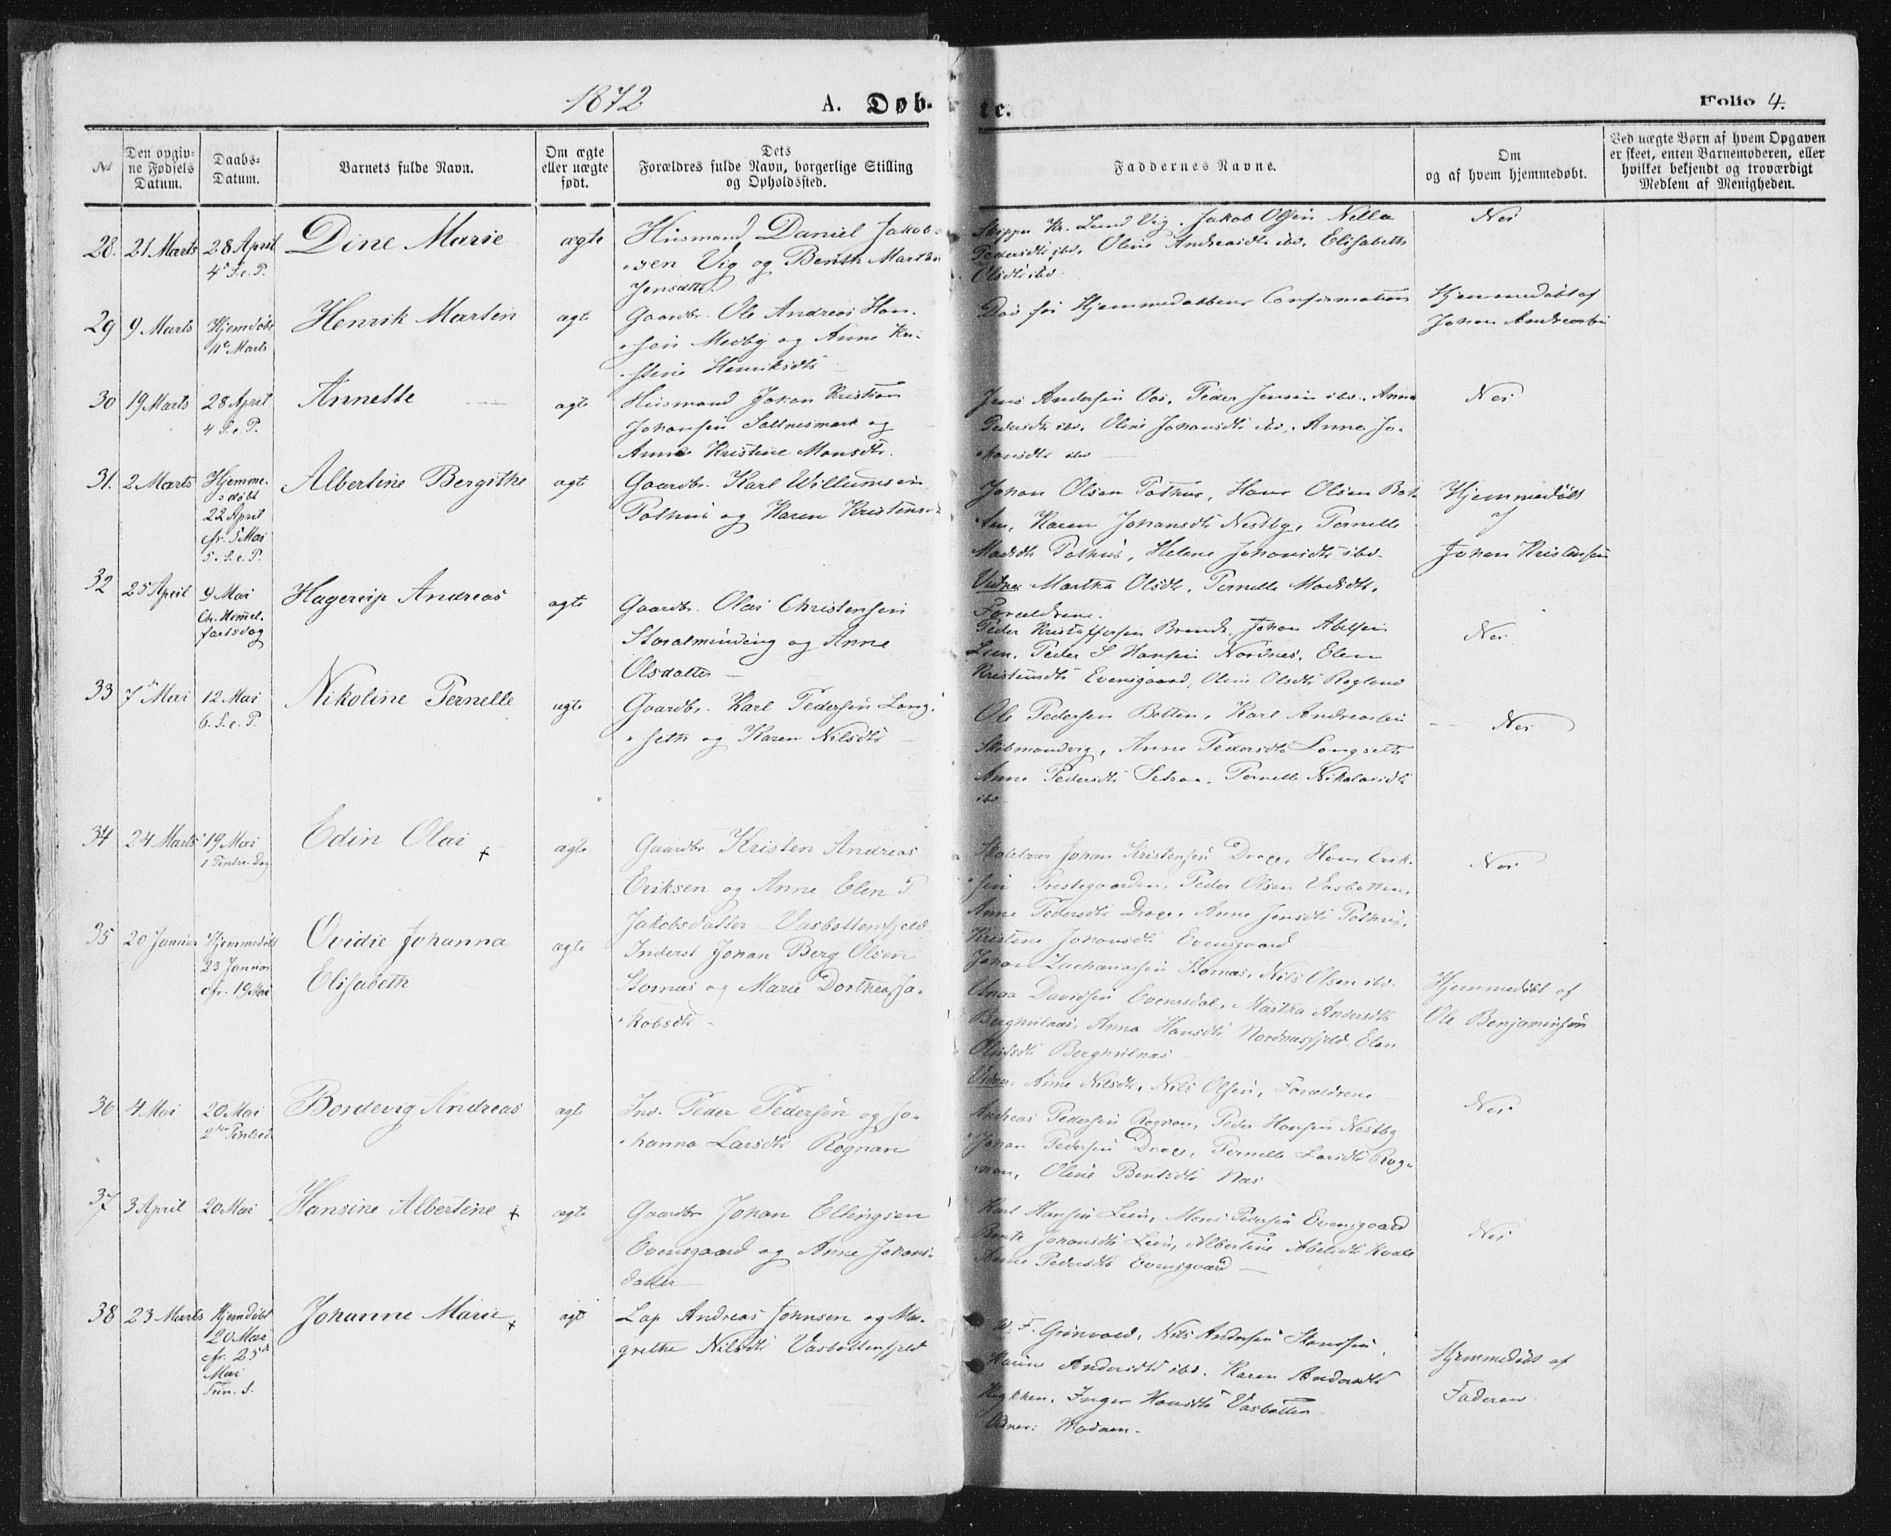 1872
A. Døb-
te.
Folio 4.
№
Den opgiv-
ne Fødsels
Datum.
Daabs-
Datum.
Barnets fulde Navn.
Om ægte
eller uægte
født.
Dets
Forældres fulde Navn, borgerlige Stilling
og Opholdssted.
Faddernes Navne.
Om
og af hvem hjemmedøbt.
Ved uægte Børn af hvem Opgaven
er skeet, enten Barnemoderen, eller
hvilket bekjendt og troværdigt
Medlem af Menigheden.
28. 21 Marts
28 April
4 S. e. P.
Dine Marie
ægte
Husmand Daniel Jakob-
sen Vig og Benth Martha
Jensdatter
Skipper Kr. Lund Vig, Jakob Olsen Nella
Pedersdtr ibd., Oline Andreasdtr ibd., Elisabeth
Olsdtr ibd.
Nei
29 9 Marts
Hjemdøbt
Marts
Henrik Martin
ægte
Gaardbr. Ole Andreas Han-
sen Medby og Anne Kri-
stine Henriksdtr
Død før Hjemmedaabens Confirmation
Hjemmedøbt af
Johan Andreas
30 19 Marts
28 April
4 S. e. P.
Annette
ægte
Husmand Johan Kristian
Johansen Saltnesmark og
Anne Kristine Monsdtr.
Jens Andersen Oos, Peder Jensen ibd., Anne
Pedersdtr ibd., Oline Johansdtr ibd., Anne Jo-
hansdtr ibd
Nei
31. 2 Marts
Hjemme-
døbt
22 April
cfr. 5 Mai
5. S. e. P.
Albertine Bergithe
ægte
Gaardbr. Karl Willumsen
Pothus og Karen Kristens
Johan Olsen Pothus, Hans Olsen Bot-
ten, Karen Johansdtr Nestby, Pernelle
Madsdtr Pothus, Helene Johansdtr ibd.
Vidner Martha Olsdtr, Pernelle Madsdtr,
Forældrene.
Hjemmedøbt
af
Johan Kristensen
32 25 April
9 Mai
Chr. Himmel-
fartsdag
Hagerup Andreas
ægte
Gaardbr. Olai Christensen
Storalminding og Anne
Olsdatter
Peder Kristoffersen Brandt, Johan Abelsen
Leen, Peder S. Hansen Nordnes, Elen
Kristiansdtr Evensgaard, Oline Olsdtr Rogland
Nei.
33 7 Mai
12 Mai
6. S. e. P.
Nikoline Pernelle
ægte
Gaardbr. Karl Pedersen Lang-
seth og Karen Nilsdtr
Ole Pedersen Botten, Karl Andreassen
Skibmandvig, Anne Pedersdtr Langseth
Anne Pedersdtr Setsaa, Pernelle Nikolaisdtr
ibd
Nei
34 24 Marts
19 Mai
1 Pintse-Dag
Edin Olai
ægte
Gaardbr. Kristen Andreas
Eriksen og Anne Elen P.
Jakobsdatter Vasbottenfjeld
Skolelærer Johan Kristensen Drage, Hans Erik-
sen Prestegaarden, Peder Olsen Vasbotten,
Anne Pedersdtr Drage, Anne Jensdtr Pothus,
Kristine Johansdtr Evensgaard
Nei
35 20 Januar
Hjemmedøbt
23 Januar
cfr. 19 Mai
Ovidie Johanna
Elisabeth
ægte
Inderst Johan Berg Olsen
Stornæs og Marie Dorthea Ja-
kobsdtr
Johan Zachariasen Stornæs, Nils Olsen ibd.
Davidsen Evensdal, Martha Andersdtr
Berghulnæs, Anna Hansdtr Nordnæsfjeld, Elen
Olufsdtr Berghulnæs
Vidner: Anne Nilsdtr, Nils Olsen, Forældrene
Hjemmedøbt af
Ole Benjaminsen
36 4 Mai
20 Mai
2den Pintsed.
Bordevig Andreas
ægte
Ind. Peder Pedersen og Jo-
hanna Larsdtr Rognan
Andreas Pedersen Rognan, Peder Hansen Nestby
Johan Pedersen Drage, Pernelle Larsdtr Rog-
nan, Oline Bentsdtr Næs
Nei
37 3 April
20 Mai
Hansine Albertine
ægte
Gaardbr Johan Ellingsen
Evensgaard og Anne Johans-
datter
Karl Hansen Leen, Mons Pedersen Evensgaard
Bente Johansdtr Leen, Albertine Abelsdtr Kvale
Anne Pedersdtr Evensgaard
Nei
38 23 Marts
Hjemdøbt
20 Mai
cfr. 25
Mai
Trin. S.
Johanne Marie
ægt
Lap Andreas Johnsen og Mar-
grethe Nilsdtr Vasbottenfjeld
W. F. Grönvold, Nils Andersen Storjord,
Karen Andersdtr ibd. Karen Andersdtr
Inger Hansdtr Vasbotten
Vidner: Madam.
Hjemmedøbt af
Faderen